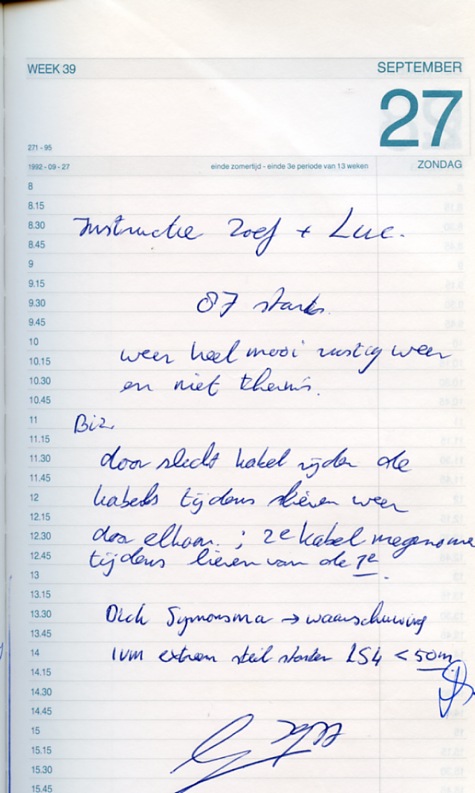 WEEK 39
SEPTEMBER
27
271 - 95
1992 - 09 - 27
einde zomertijd - einde 3e periode van 13 weken
ZONDAG
8
8.15
8.30
Instructie Zoef + Luc.
8.45
9
9.15
9.30
87 starts.
9.45
10
weer heel mooi rustig weer
10.15
10.30
en niet thermis.
10.45
11
Biz.
11.15
11.30
door slecht kabel rijden de
11.45
12
kabels tijdens lieren weer
12.15
12.30
door elkaar. ; 2e kabel megenome
12.45
tijdens lieren van de 1e.
13
13.15
13.30
Dick Symonsma → waarschuwing
13.45
14
ivm extreem steil starten LS4 < 50m
14.15
14.30
14.45
15
15.15
15.30
15.45